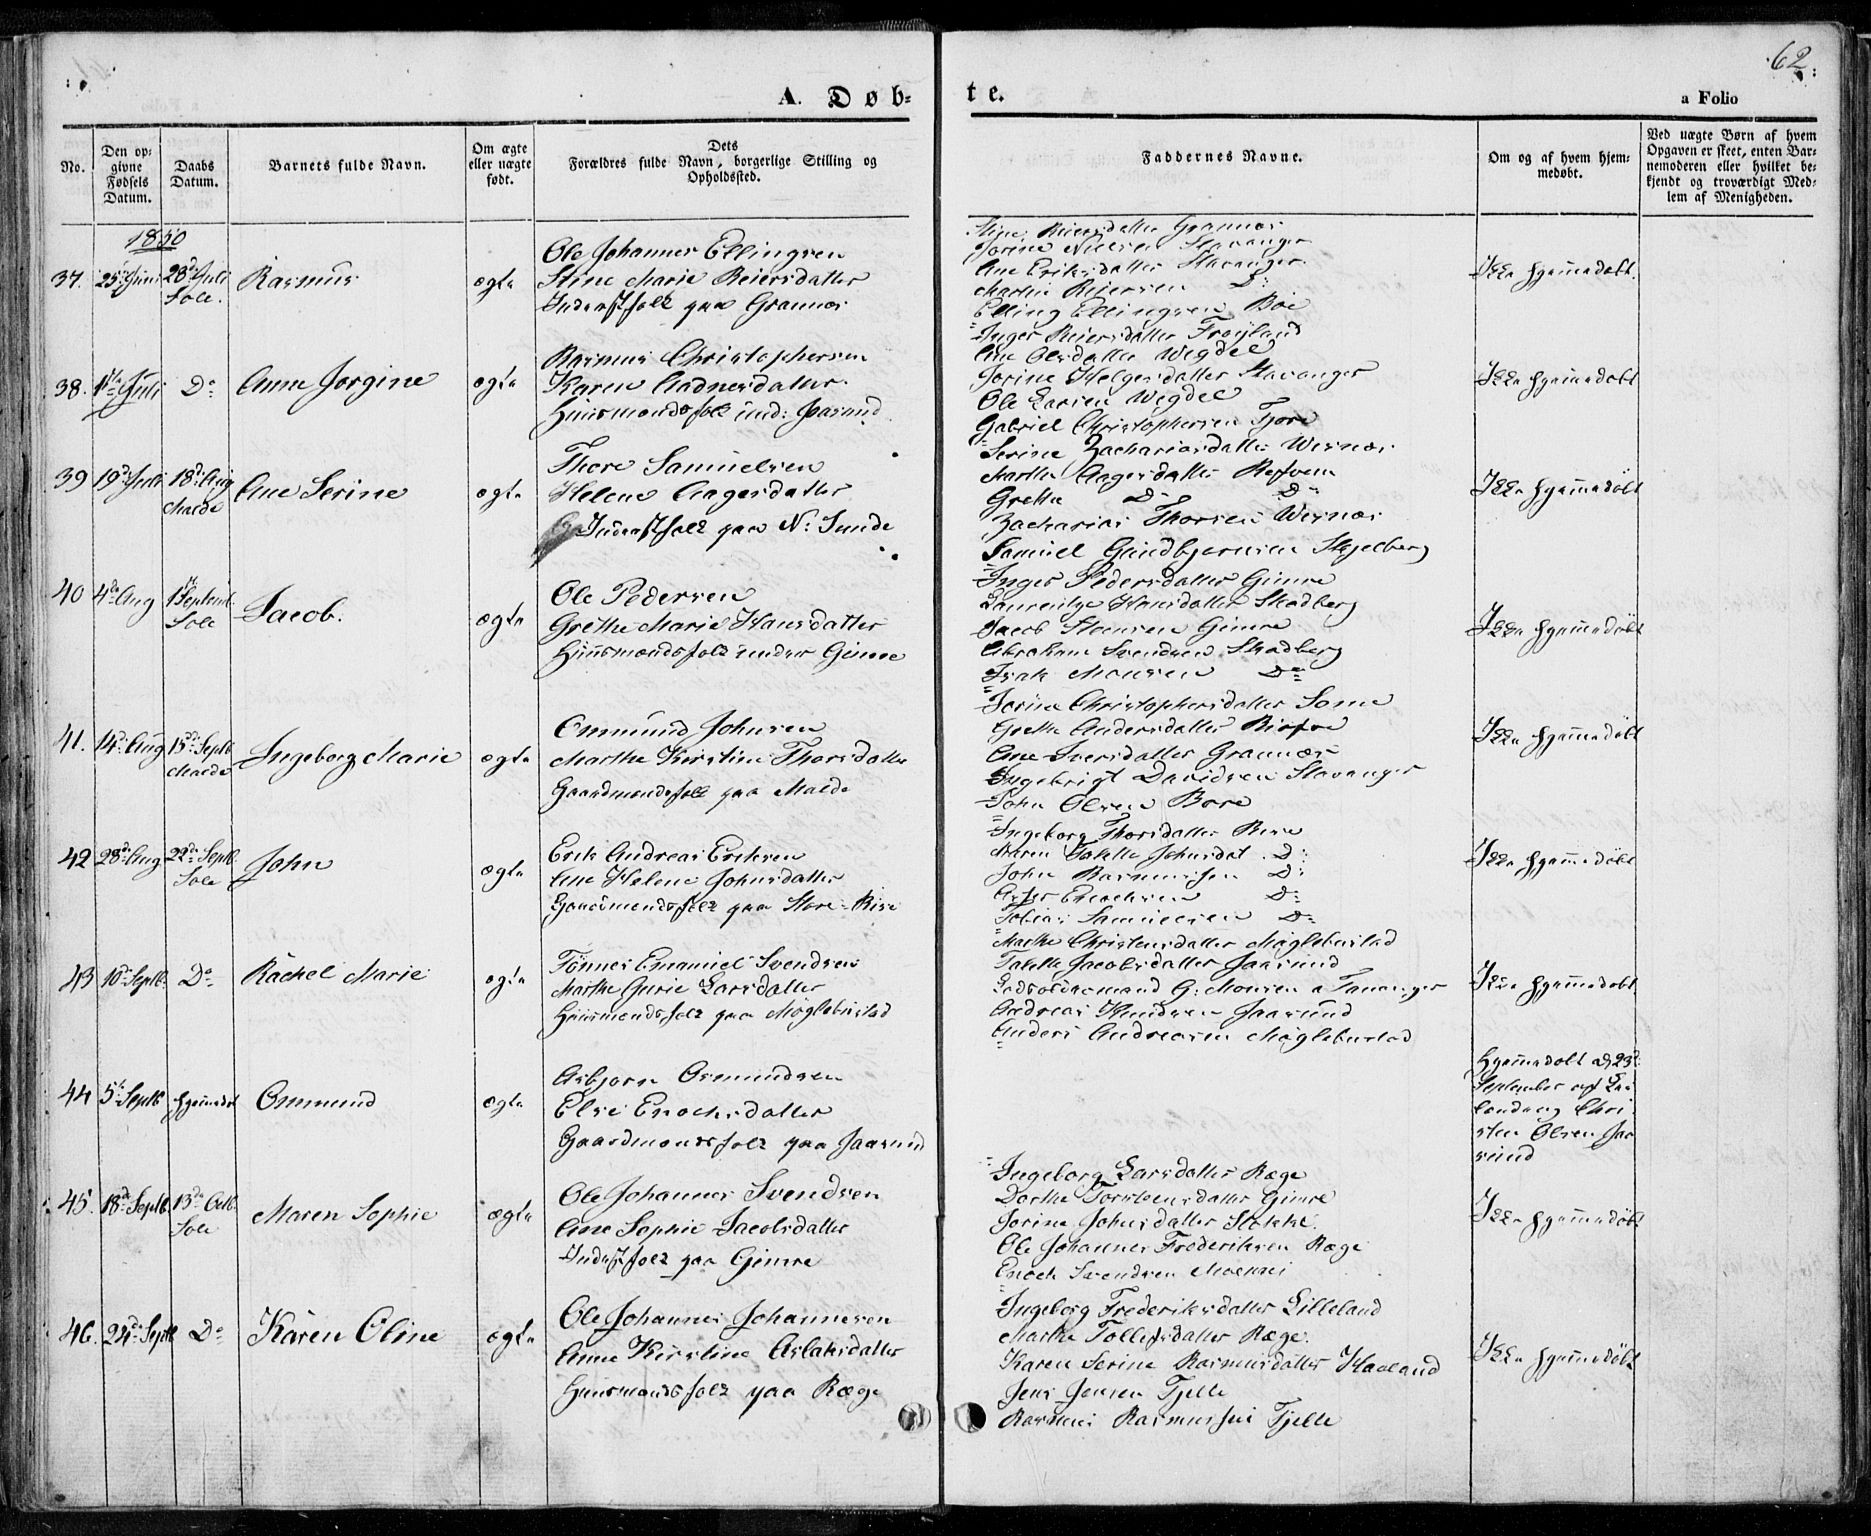 62.
A. Døb-
te.
a Folio
No.
Den op-
givne
Fødsels
Datum.
Daabs
Datum.
Barnets fulde Navn.
Om ægte
eller uægte
født.
Dets
Forældres fulde Navn, borgerlige Stilling og
Opholdssted.
Faddernes Navne.
Om og af hvem hjem-
medøbt.
Ved uægte Børn af hvem
Opgaven er skeet, enten Bar-
nemoderen eller hvilket be-
kjendt og troværdigt Med-
lem af Menigheden.
1850
37. 25de Juni 28de Juli
Sole.
Rasmus
ægte
Ole Johannes Ellingsen
Stine Marie Reiersdatter
Inderstfolk paa Grannes
Stine Reiersdatter Grannes
Jorine Nielsen Stavanger
Ane Eriksdatter Stavanger
Martin Reiersen Do
Elling Ellingsen Bøe
Ikke hjemmedøbt.
38. 11te Juli Do
Anne Jorgine
ægte
Rasmus Christophersen
Karen Aadnesdatter
Huusmandsfolk und: Jaasund
Inger Reiersdatter Frøyland
Ane Olsdatter Wigdel
Jorine Helgesdatter Stavanger
Ole Larsen Wigdel
Gabriel Christophersen Tjore
Ikke hjemmedøbt
39 19de Juli 18de Aug
Malde
Ane Serine
ægte
Thore Samuelsen
Helene Aagesdatter
Inderstfolk paa N: Sunde
Serine Zachariasdatter Wisnæs
Marthe Aagesdatter Refsvem
Grethe Do Do
Zacharias Thorsen Wisnæs
Samuel Gundbjørnsen Stjelberg
Ikke hjemmedøbt
40 4de Aug 1ste Septemb.
Sole
Jacob.
ægte
Ole Pedersen
Grethe Marie Hansdatter
Huusmandsfolk under Gimre
Inger Pedersdatter Gimre
Laurentze Hansdatter Skadberg
Jacob Steensen Gimre
Abraham Svendsen Skadberg
Isak Monsen Do
Ikke hjemmedøbt
41. 14de Aug 15de Septb.
Malde
Ingeborg Marie
ægte
Ommund Johnsen
Marthe Kirstine Thorsdatter
Gaardmandsfolk paa Malde
Jorine Christophersdatter Some
Grethe Andersdatter
Ane Iversdatter Grannæs
Ingebrigt Davidsen Stavanger
John Olsen Bore
Ikke hjemmedøbt
42 28de Aug 22de Septb.
Sole
John
ægte
Erik Andreas Eriksen
Ane Helene Johnsdatter
Gaardmandsfolk paa Store-Risa
Ingeborg Thorsdatter Risa
Maren Tolette Johnsdat. Do
John Rasmussen Do
Enochsen Do
Tobias Samuelsen Do
Ikke hjemmedøbt
43 10de Septb. Do
Rachel Marie
ægte
Tønnes Emanuel Svendsen
Marthe Gurie Larsdatter
Huusmandsfolk paa Møglebustad
Marthe Christensdatter Møglebustad
Tolette Jacobsdatter Jaasund
Lodsoldermand G: Monsen a Tananger
Andreas Knudsen Jaasund
Anders Andreasen Møglebustad
Ikke hjemmedøbt
44 5te Septb hjemmedøbt
Ommund
ægte
Asbjørn Osmundsen
Else Enochsdatter
Gaardmandsfolk paa Jaasund
Hjemmedøbt d. 23de
September af
Chri-
sten Olsen Jaa-
sund
45. 18de Septb. 13de Octb.
Sole
Maren Sophie
ægte
Ole Johannes Svendsen
Ane Sophie Jacobsdatter
Inderstfolk paa Gimre
Ingeborg Larsdatter Ræge
Dorthe Torstensdatter Gimre
Jorine Johnsdatter Stokke.
Ole Johannes Frederiksen Ræge
Enoch Svendsen
Ikke hjemmedøbt
46. 24de Septb Do
Karen Oline
ægte
Ole Johannes Johannesen
Anne Kirstine Aslaksdatter
Huusmandsfolk paa Ræge
Ingeborg Frederiksdatter Lilleland
Marthe Tollefsdatter Ræge.
Karen Serine Rasmusdatter Haaland
Jens Jensen Tjelle
Rasmus Rasmussen Tjelle
Ikke hjemmedøbt